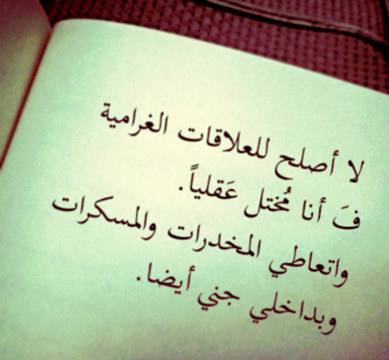 لا أصلح للعلاقات الغرامية
فَ أنا مُختل عَقلياً.
واتعاطي المخدرات والمسكرات
وبداخلي جني أيضا.